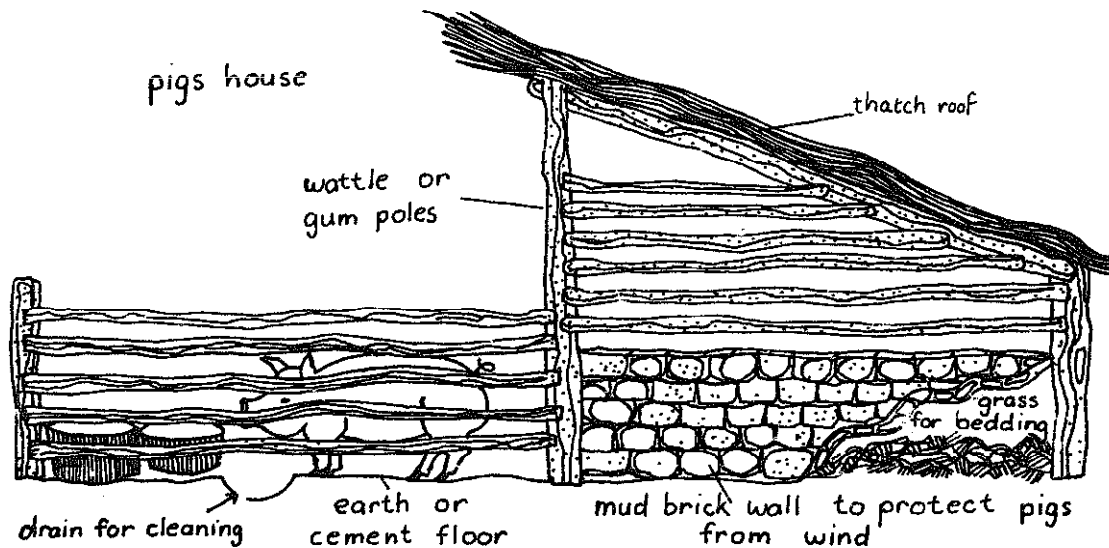 pigs house
thatch roof
wattle or
gum poles
grass
for bedding
drain for cleaning
earth or
cement floor
mud brick wall to protect pigs
from wind